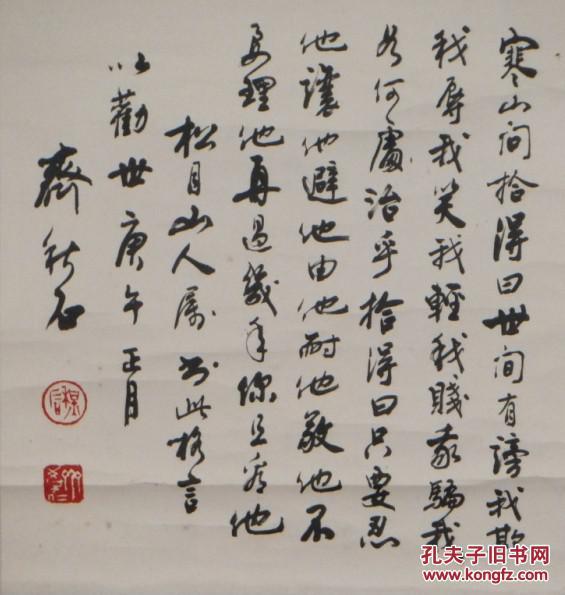 寒山问拾得曰世间有谤我欺
我辱我笑我轻我賤我騙我
如何處治乎拾得曰只要忍
他讓他避他由他耐他敬他不
要理他再過幾年你且看他
松月山人属书此格言
以勸世庚午正月
齊
孔夫子旧书网
www.kongfz.com